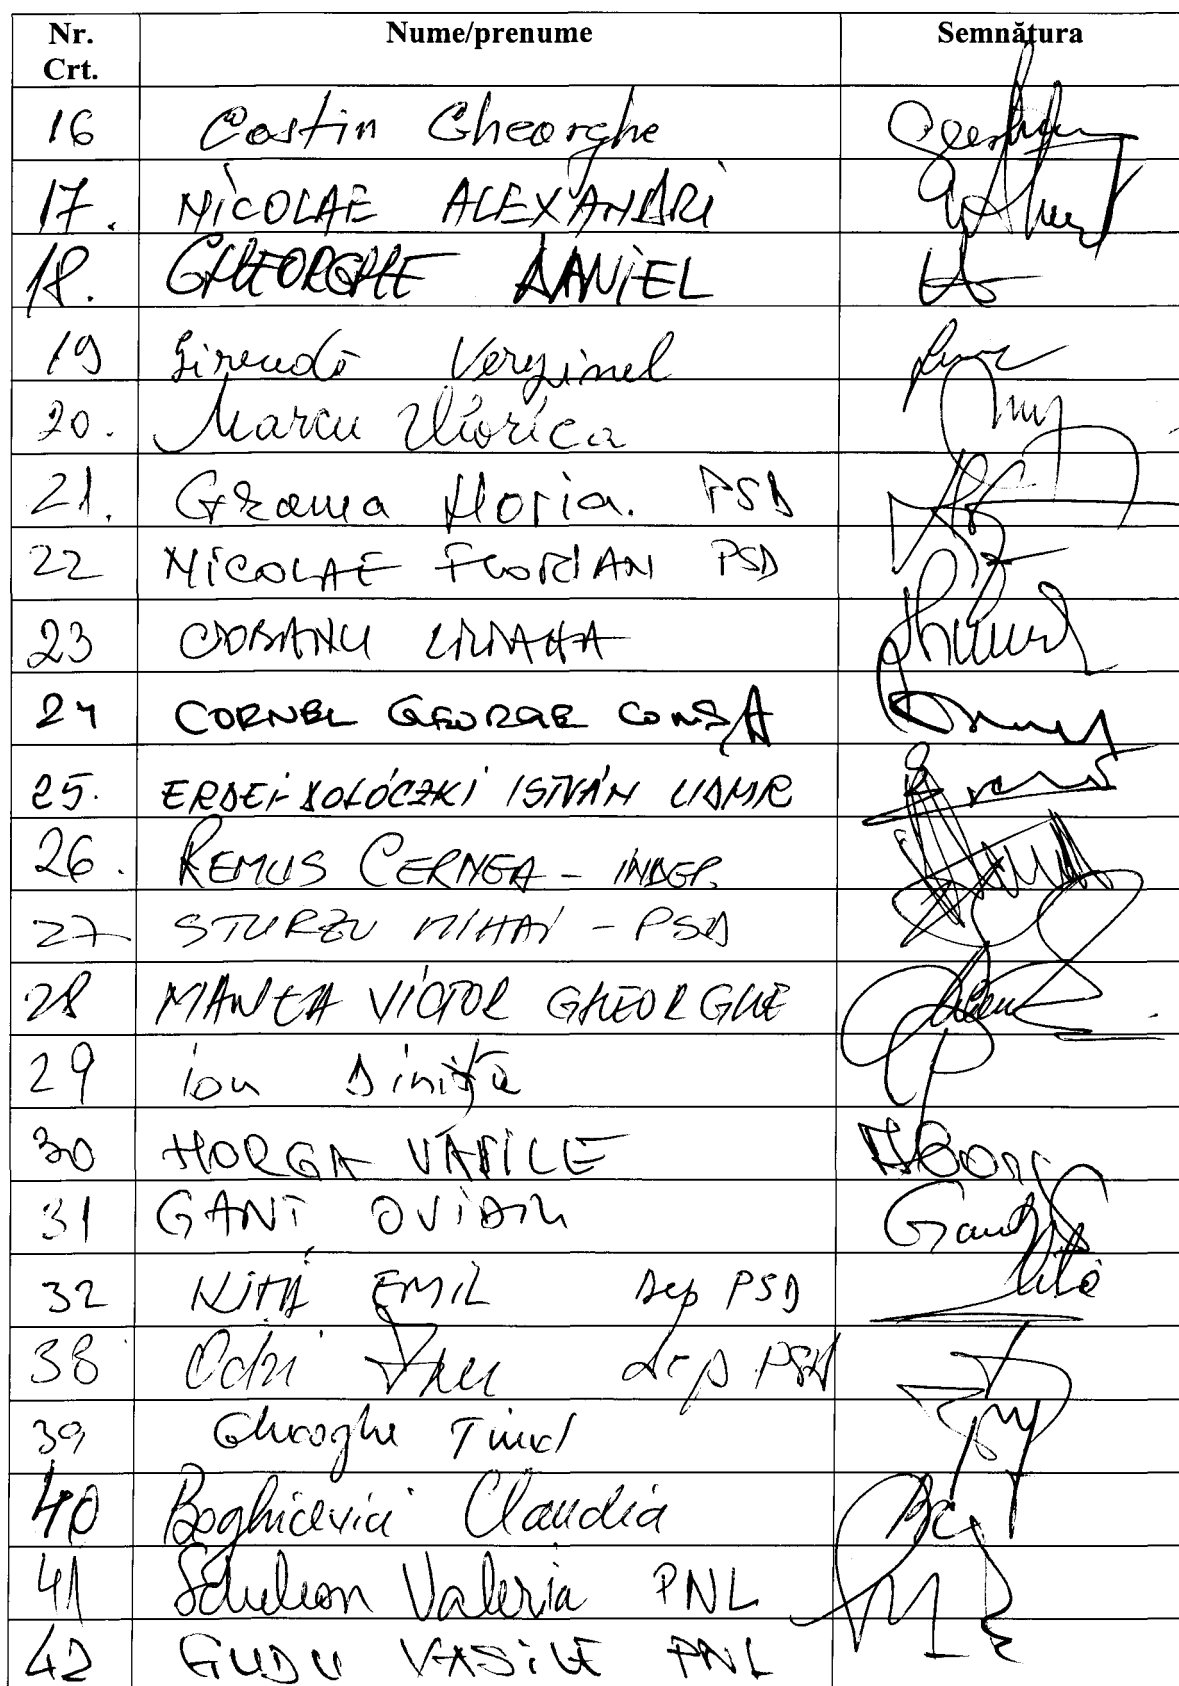 Nr. Crt. Nume/prenume Semnătura
16 Costin Gheorghe
17. NICOLAE ALEXANDRI
18. GHEORGHE DANIEL
19 Verginel
20. Marcu Viorica
21. Grama Horia. PSD
22 NICOLAE FLORIAN PSD
23 CIOBANU LILIANA
24 CORNEL GEORGE COMȘA
25. ERDEI-DOLÓCZKI ISTVÁN UDMR
26. REMUS CERNEA - INDEP.
27 STURZU MIHAI - PSD
28 MANEA VICTOR GHEORGHE
29 ion Diniță
30 HORGA VASILE
31 GANȚ OVIDIU
32 NIȚĂ EMIL Dep PSD
38 dep PSD
39 Gheorghe Tinel
40 Boghicevici Claudia
41 Schelean Valeria PNL
42 GUDU VASILE PNL